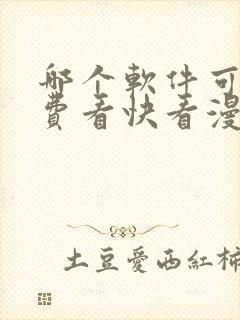 哪个軟件可
費看快看漫
土豆愛西紅柿